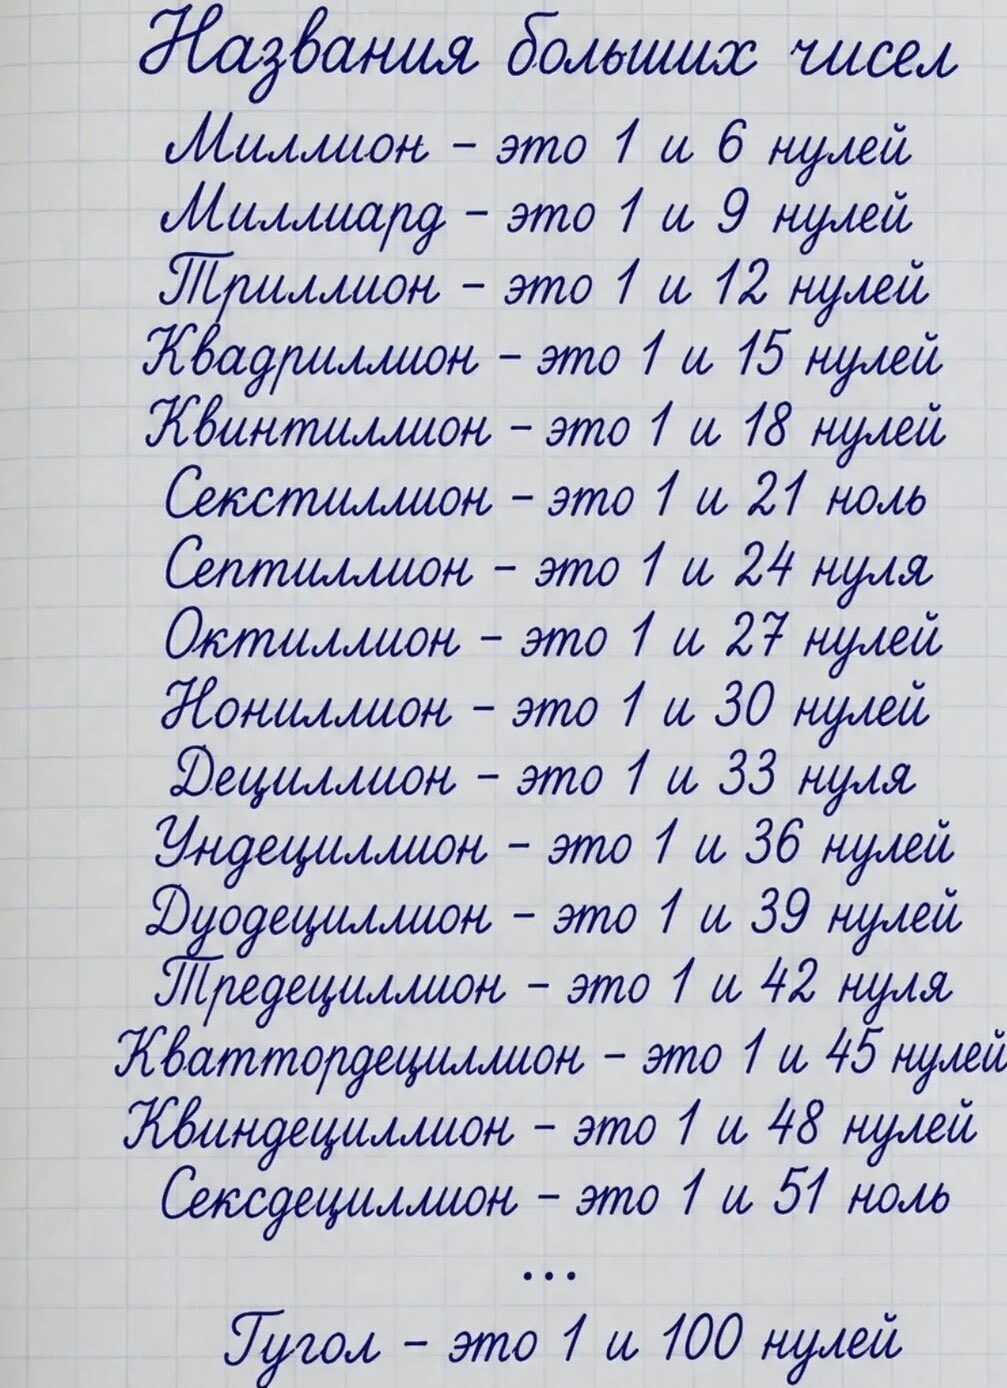 Названия больших чисел
Миллион – это 1 и 6 нулей
Миллиард – это 1 и 9 нулей
Триллион – это 1 и 12 нулей
Квадриллион – это 1 и 15 нулей
Квинтиллион – это 1 и 18 нулей
Секстиллион – это 1 и 21 ноль
Септиллион – это 1 и 24 нуля
Октиллион – это 1 и 27 нулей
Нониллион – это 1 и 30 нулей
Дециллион – это 1 и 33 нуля
Ундециллион – это 1 и 36 нулей
Дуодециллион – это 1 и 39 нулей
Тредециллион – это 1 и 42 нуля
Кваттордециллион – это 1 и 45 нулей
Квиндециллион – это 1 и 48 нулей
Сексдециллион – это 1 и 51 ноль
...
Гугол – это 1 и 100 нулей